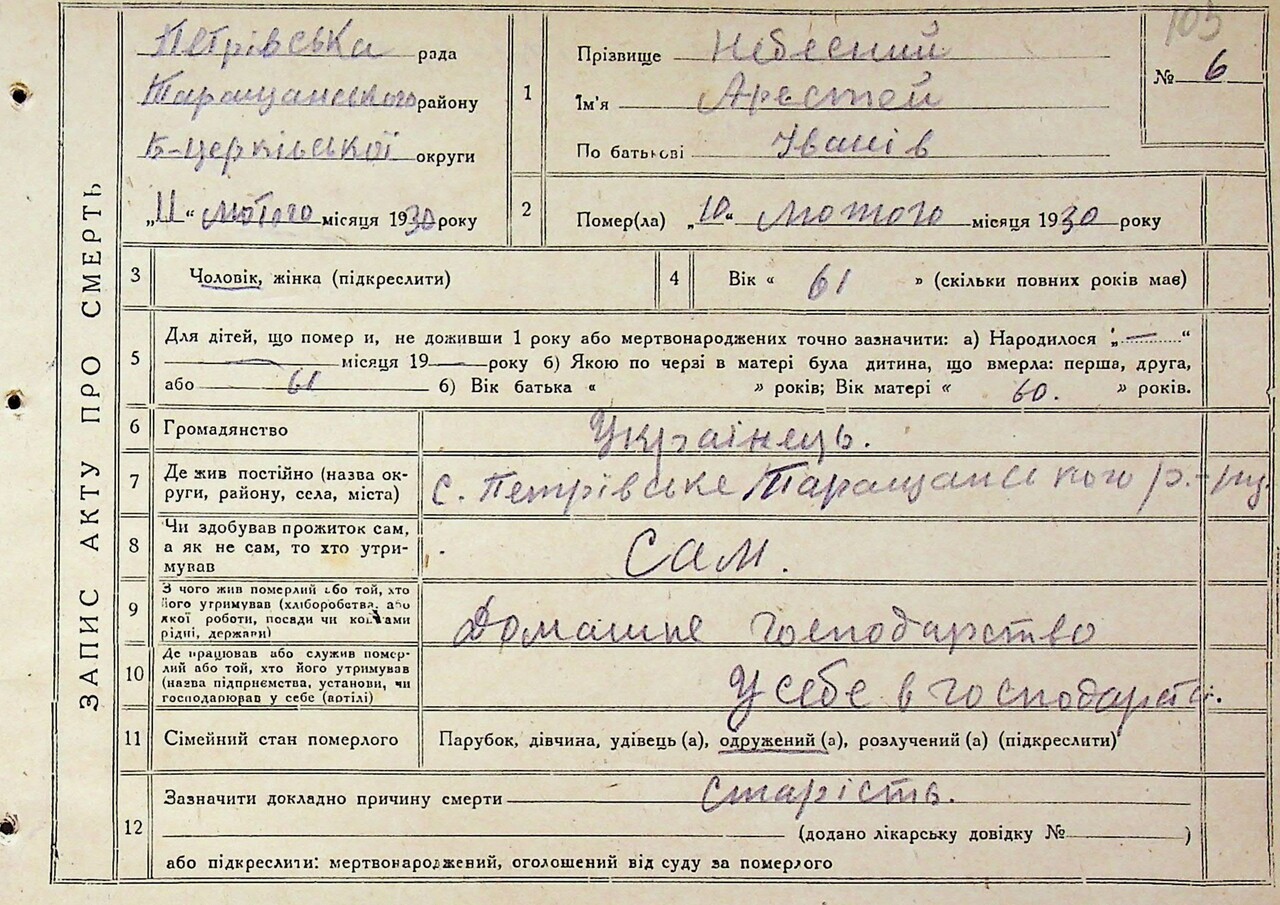 ЗАПИС АКТУ ПРО СМЕРТЬ
105
Петрівська рада
Таращанського району
Б-церківської округи
„11“ лютого місяця 1930 року
1
Прізвище Небесний
Ім'я Арестей
По батькові Іванів
№ 6
2
Помер(ла) „10“ лютого місяця 1930 року
3 Чоловік, жінка (підкреслити)
4 Вік « 61 » (скільки повних років має)
5
Для дітей, що помер и, не доживши 1 року або мертвонароджених точно зазначити: а) Народилося „—“
— місяця 19— року б) Якою по черзі в матері була дитина, що вмерла: перша, друга,
або 61 б) Вік батька « » років; Вік матері « 60. » років.
6 Громадянство Українець.
7 Де жив постійно (назва ок-
руги, району, села, міста) с. Петрівське Таращанського р.-ну
8 Чи здобував прожиток сам,
а як не сам, то хто утри-
мував Сам.
9 З чого жив померлий або той, хто
його утримував (хліборобства, або
якої роботи, посади чи коштами
рідні, держави) Домашнє господарство
10 Де працював або служив помер-
лий або той, хто його утримував
(назва підприємства, установи, чи
господарював у себе (артілі) У себе в господарстві.
11 Сімейний стан померлого Парубок, дівчина, удівець (а), одружений (а), розлучений (а) (підкреслити)
12
Зазначити докладно причину смерти старість.
(додано лікарську довідку № )
або підкреслити: мертвонароджений, оголошений від суду за померлого